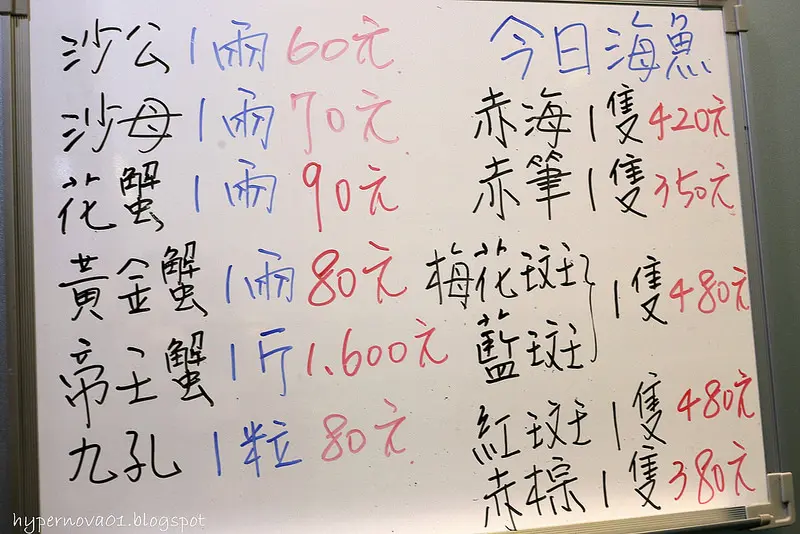 沙公 1兩 60元
沙母 1兩 70元
花蟹 1兩 90元
黃金蟹 1兩 80元
帝王蟹 1斤 1.600元
九孔 1粒 80元
今日海魚
赤海 1隻 420元
赤筆 1隻 350元
梅花斑
藍斑
1隻 480元
紅斑 1隻 480元
赤棕 1隻 380元
hypernova01.blogspot